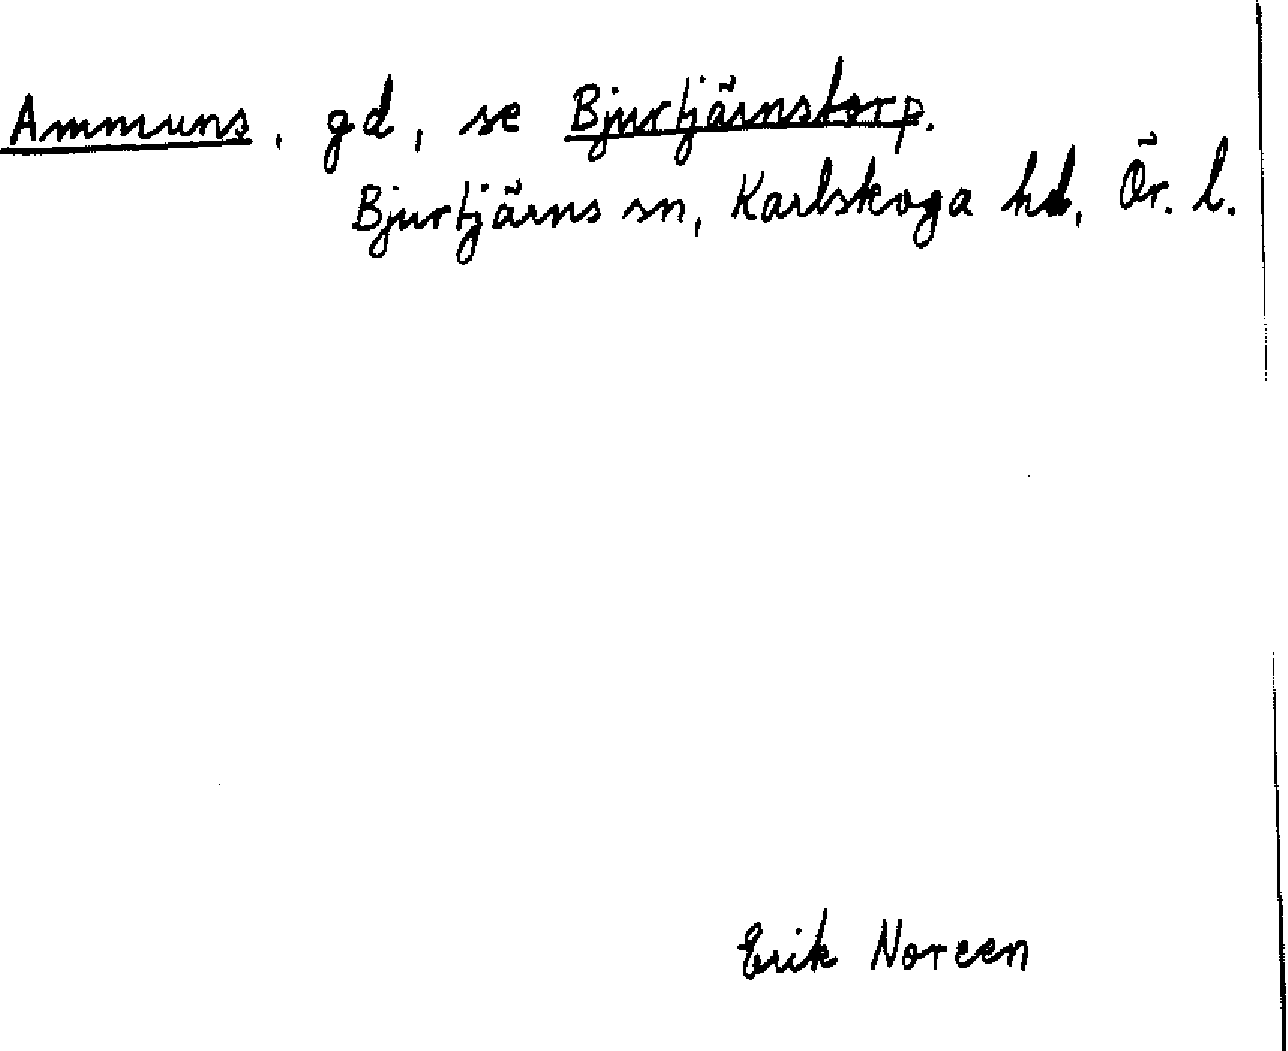 Ammuns, gd, se Bjurtjärnstorp.
Bjurtjärns sn, Karlskoga hd, Ör. l.
Erik Noreen